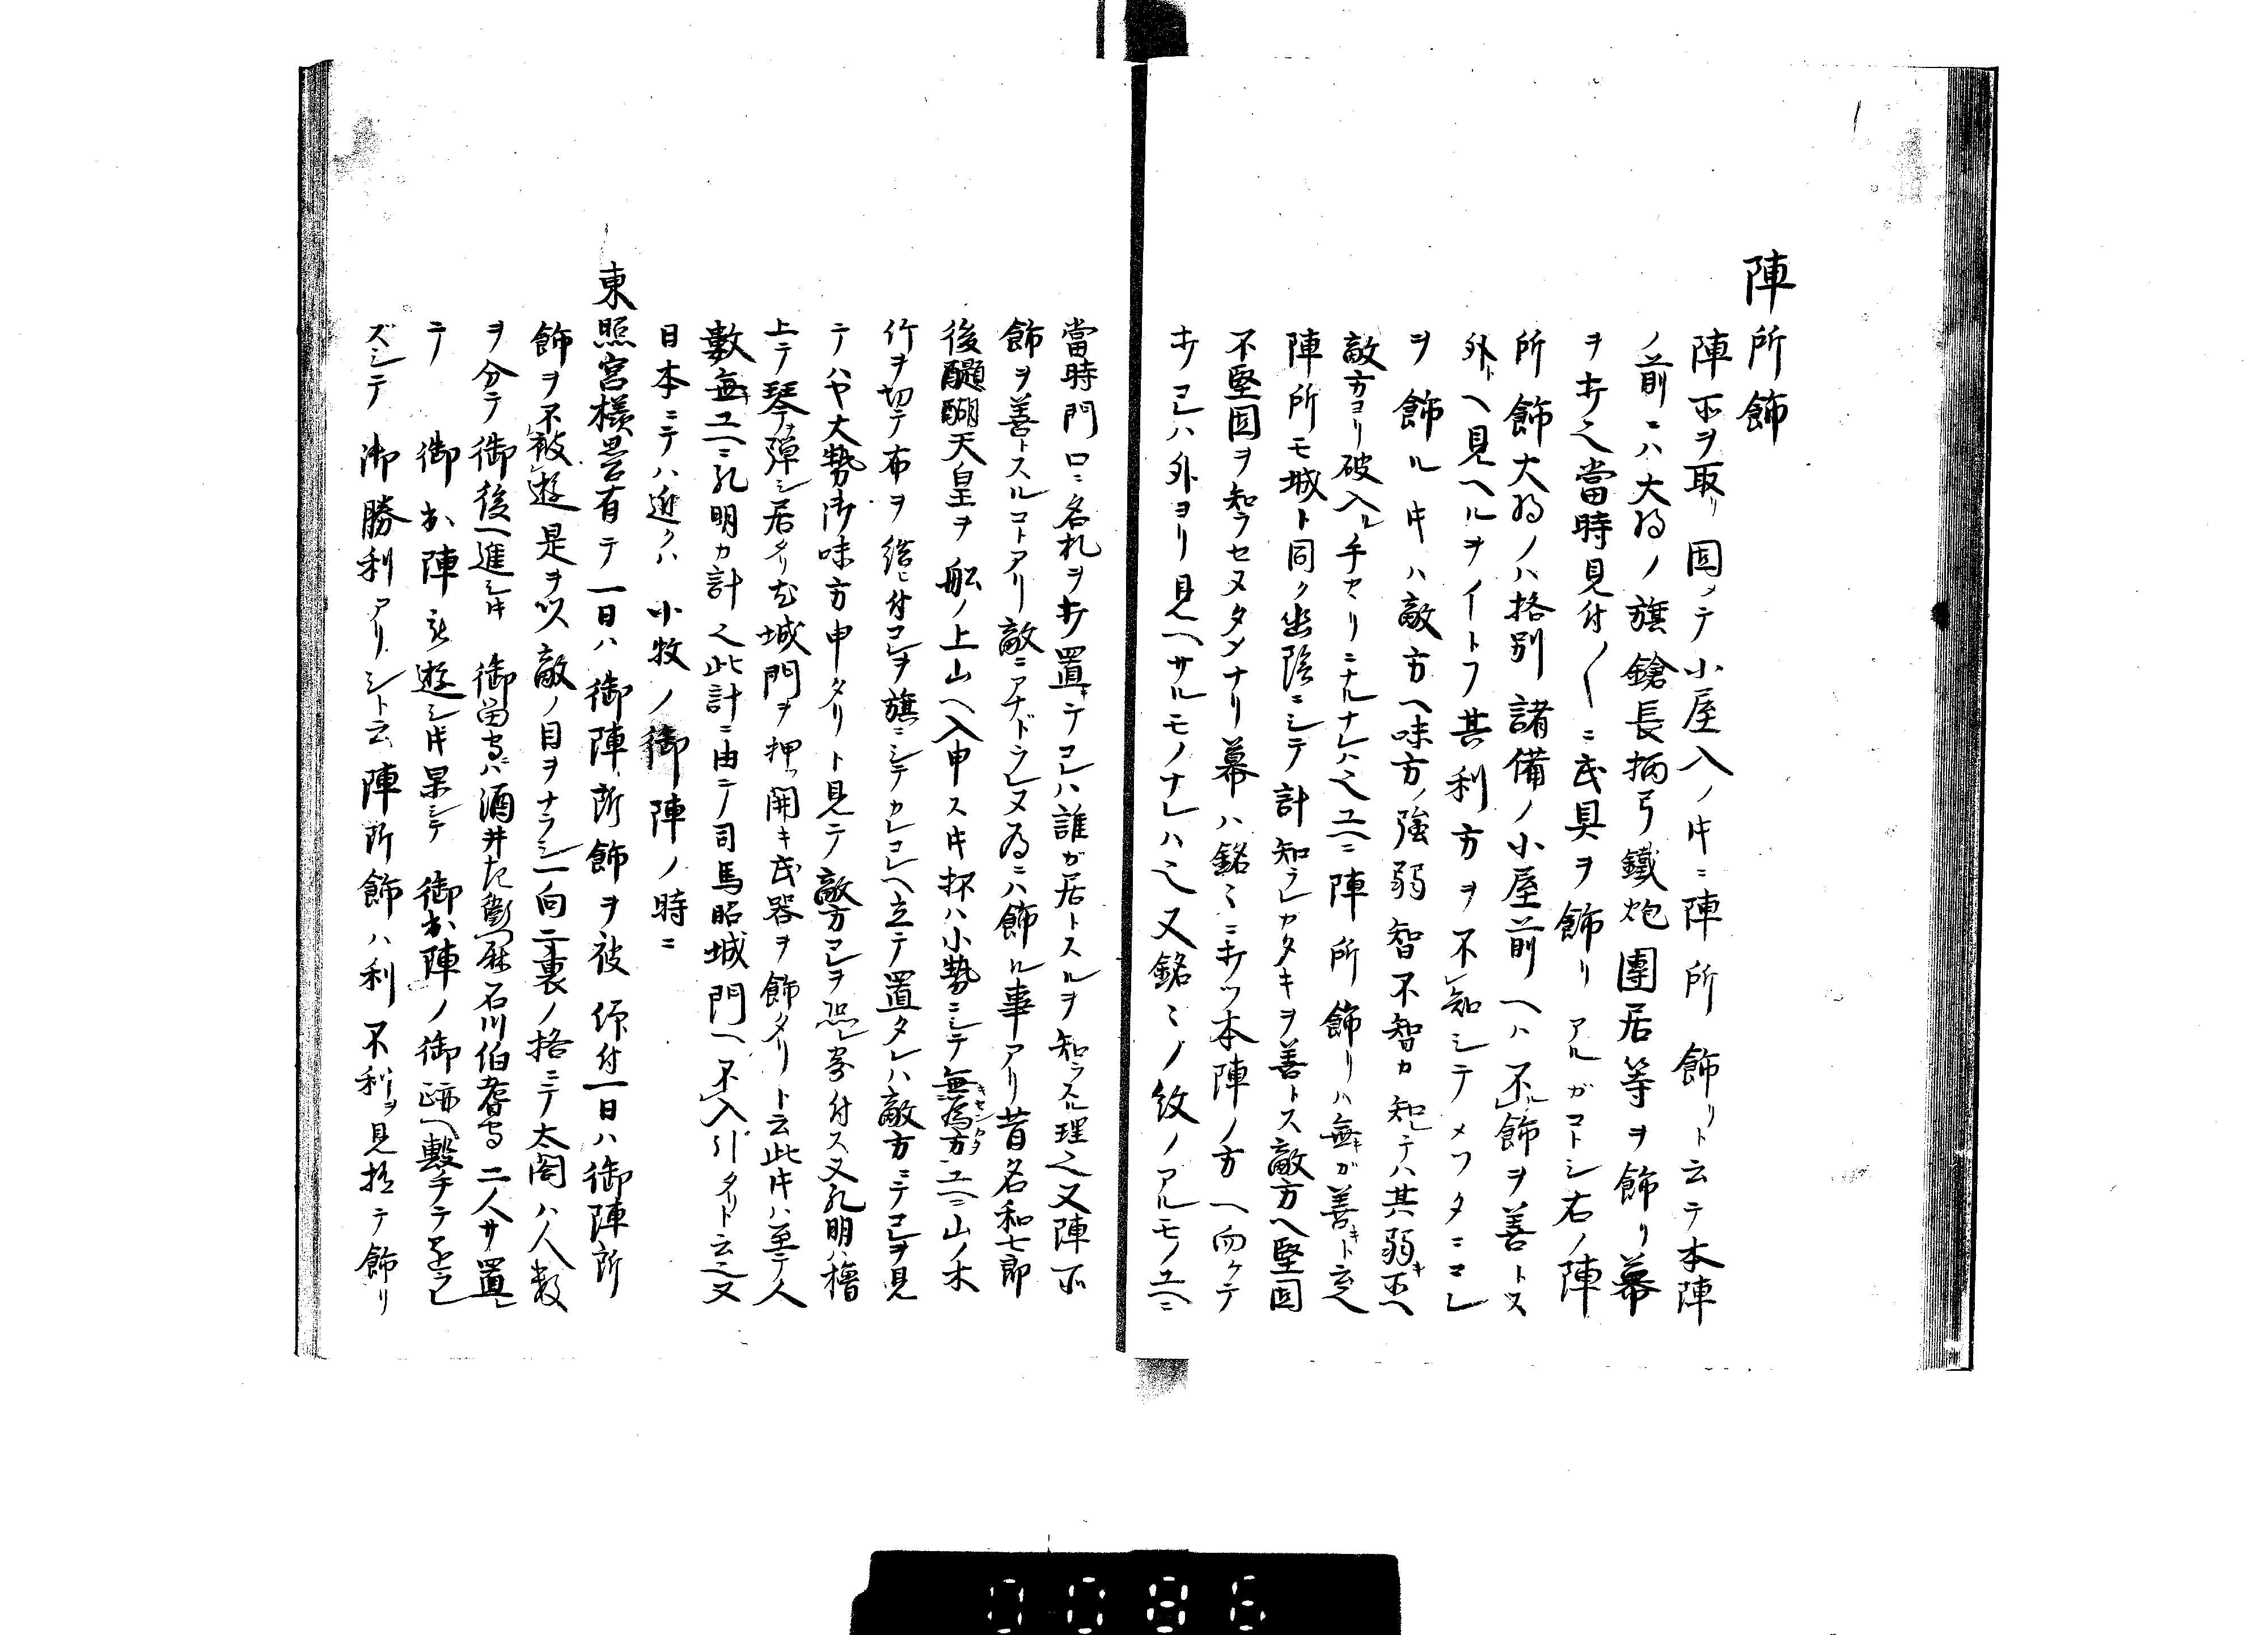 陣所飾
陣所ヲ取リ固メテ小屋入ノ时ニ陣所飾リト云テ本陣
ノ前ニハ大将ノ旗鎗長柄弓鐵炮團居等ヲ飾リ幕
ヲ打之當時見付〱ニ武具ヲ飾リアルガコトシ右ノ陣
所飾大将ノハ格別諸備ノ小屋前ヘハ不飾ヲ善トス
外トヘ見ヘルヲイトフ其利方ヲ不知シテメツタニコレ
ヲ飾ル时ハ敵方ヘ味方ノ強弱智不智カ知レテハ其弱キ所ヘ
敵方ヨリ破入ル手ヤリニナルナレハ之ユヘニ陣所飾リハ無キガ善キト之
陣所モ城ト同ク幽陰ニシテ計知ラレガタキヲ善トス敵方ヘ堅固
不堅固ヲ知ラセヌタメナリ幕ハ銘ミニ打ツ本陣ノ方ヘ向ケテ
打コレハ外ヨリ見ヘサルモノナレハ之又銘ミノ紋ノアルモノユヘニ
當時門口ニ名札ヲ打置キテコレハ誰ガ居トスルヲ知ラスル理之又陣所
飾ヲ善トスルコトアリ敵ニアナドラレヌ為ニハ飾ル事アリ昔名和七郎
後醍醐天皇ヲ船ノ上山ヘ入申ス时杯ハ小勢ニシテ無為方ユヘニ山ノ木
竹ヲ切テ布ヲ結ヒ付コレヲ旗ニシテカレコレヘ立テ置タレハ敵方ニテコレヲ見
テハヤ大勢御味方申タリト見テ敵方コレヲ恐レ寄付ス又孔明ハ櫓
上テ琴ヲ彈シ居タリ尤城門ヲ押ッ開キ武器ヲ飾タリト云此时ハ至テ人
數無キユヘニ孔明カ計之此計ニ由テ司馬昭城門ヘ不入引タリト云之又
日本ニテハ近クハ小牧ノ御陣ノ時ニ
東照宮様思召有テ一日ハ御陣所飾ヲ被仰付一日ハ御陣所
飾ヲ不被遊是ヲ以敵ノ目ヲナラシ一向ニ裏ノ格ニテ太閤ハ人數
ヲ分テ御後ヘ進シ时御留守ニハ酒井左衛門尉石川伯耆守二人サ置レ
テ御出陣被遊シ时果シテ御出陣ノ御跡ヘ
ズシテ御勝利アリシト云陣所飾ハ利不利ヲ見捨テ飾リ